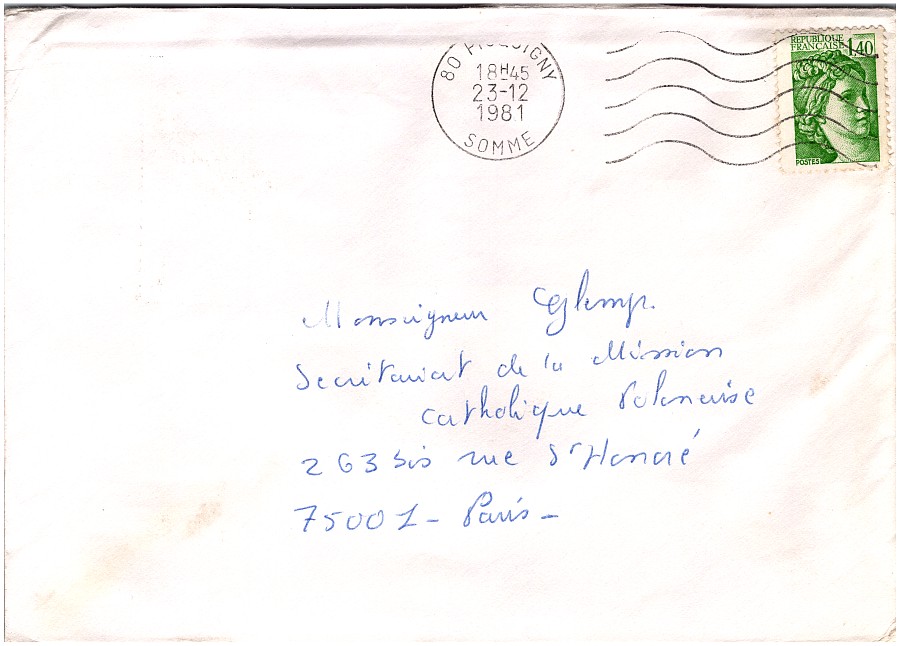 RÉPUBLIQUE
FRANÇAISE 1,40
POSTES
80 PICQUIGNY
18H45
23-12
1981
SOMME
Monseigneur Glemp.
Secrétariat de la Mission
Catholique Polonaise
263 bis rue St Honoré
75001 - Paris -